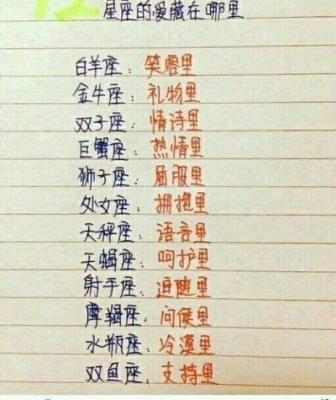 星座的爱藏在哪里
白羊座：笑容里
金牛座：礼物里
双子座：情诗里
巨蟹座：热情里
狮子座：屈服里
处女座：拥抱里
天秤座：语言里
天蝎座：呵护里
射手座：追随里
摩羯座：问候里
水瓶座：冷漠里
双鱼座：支持里